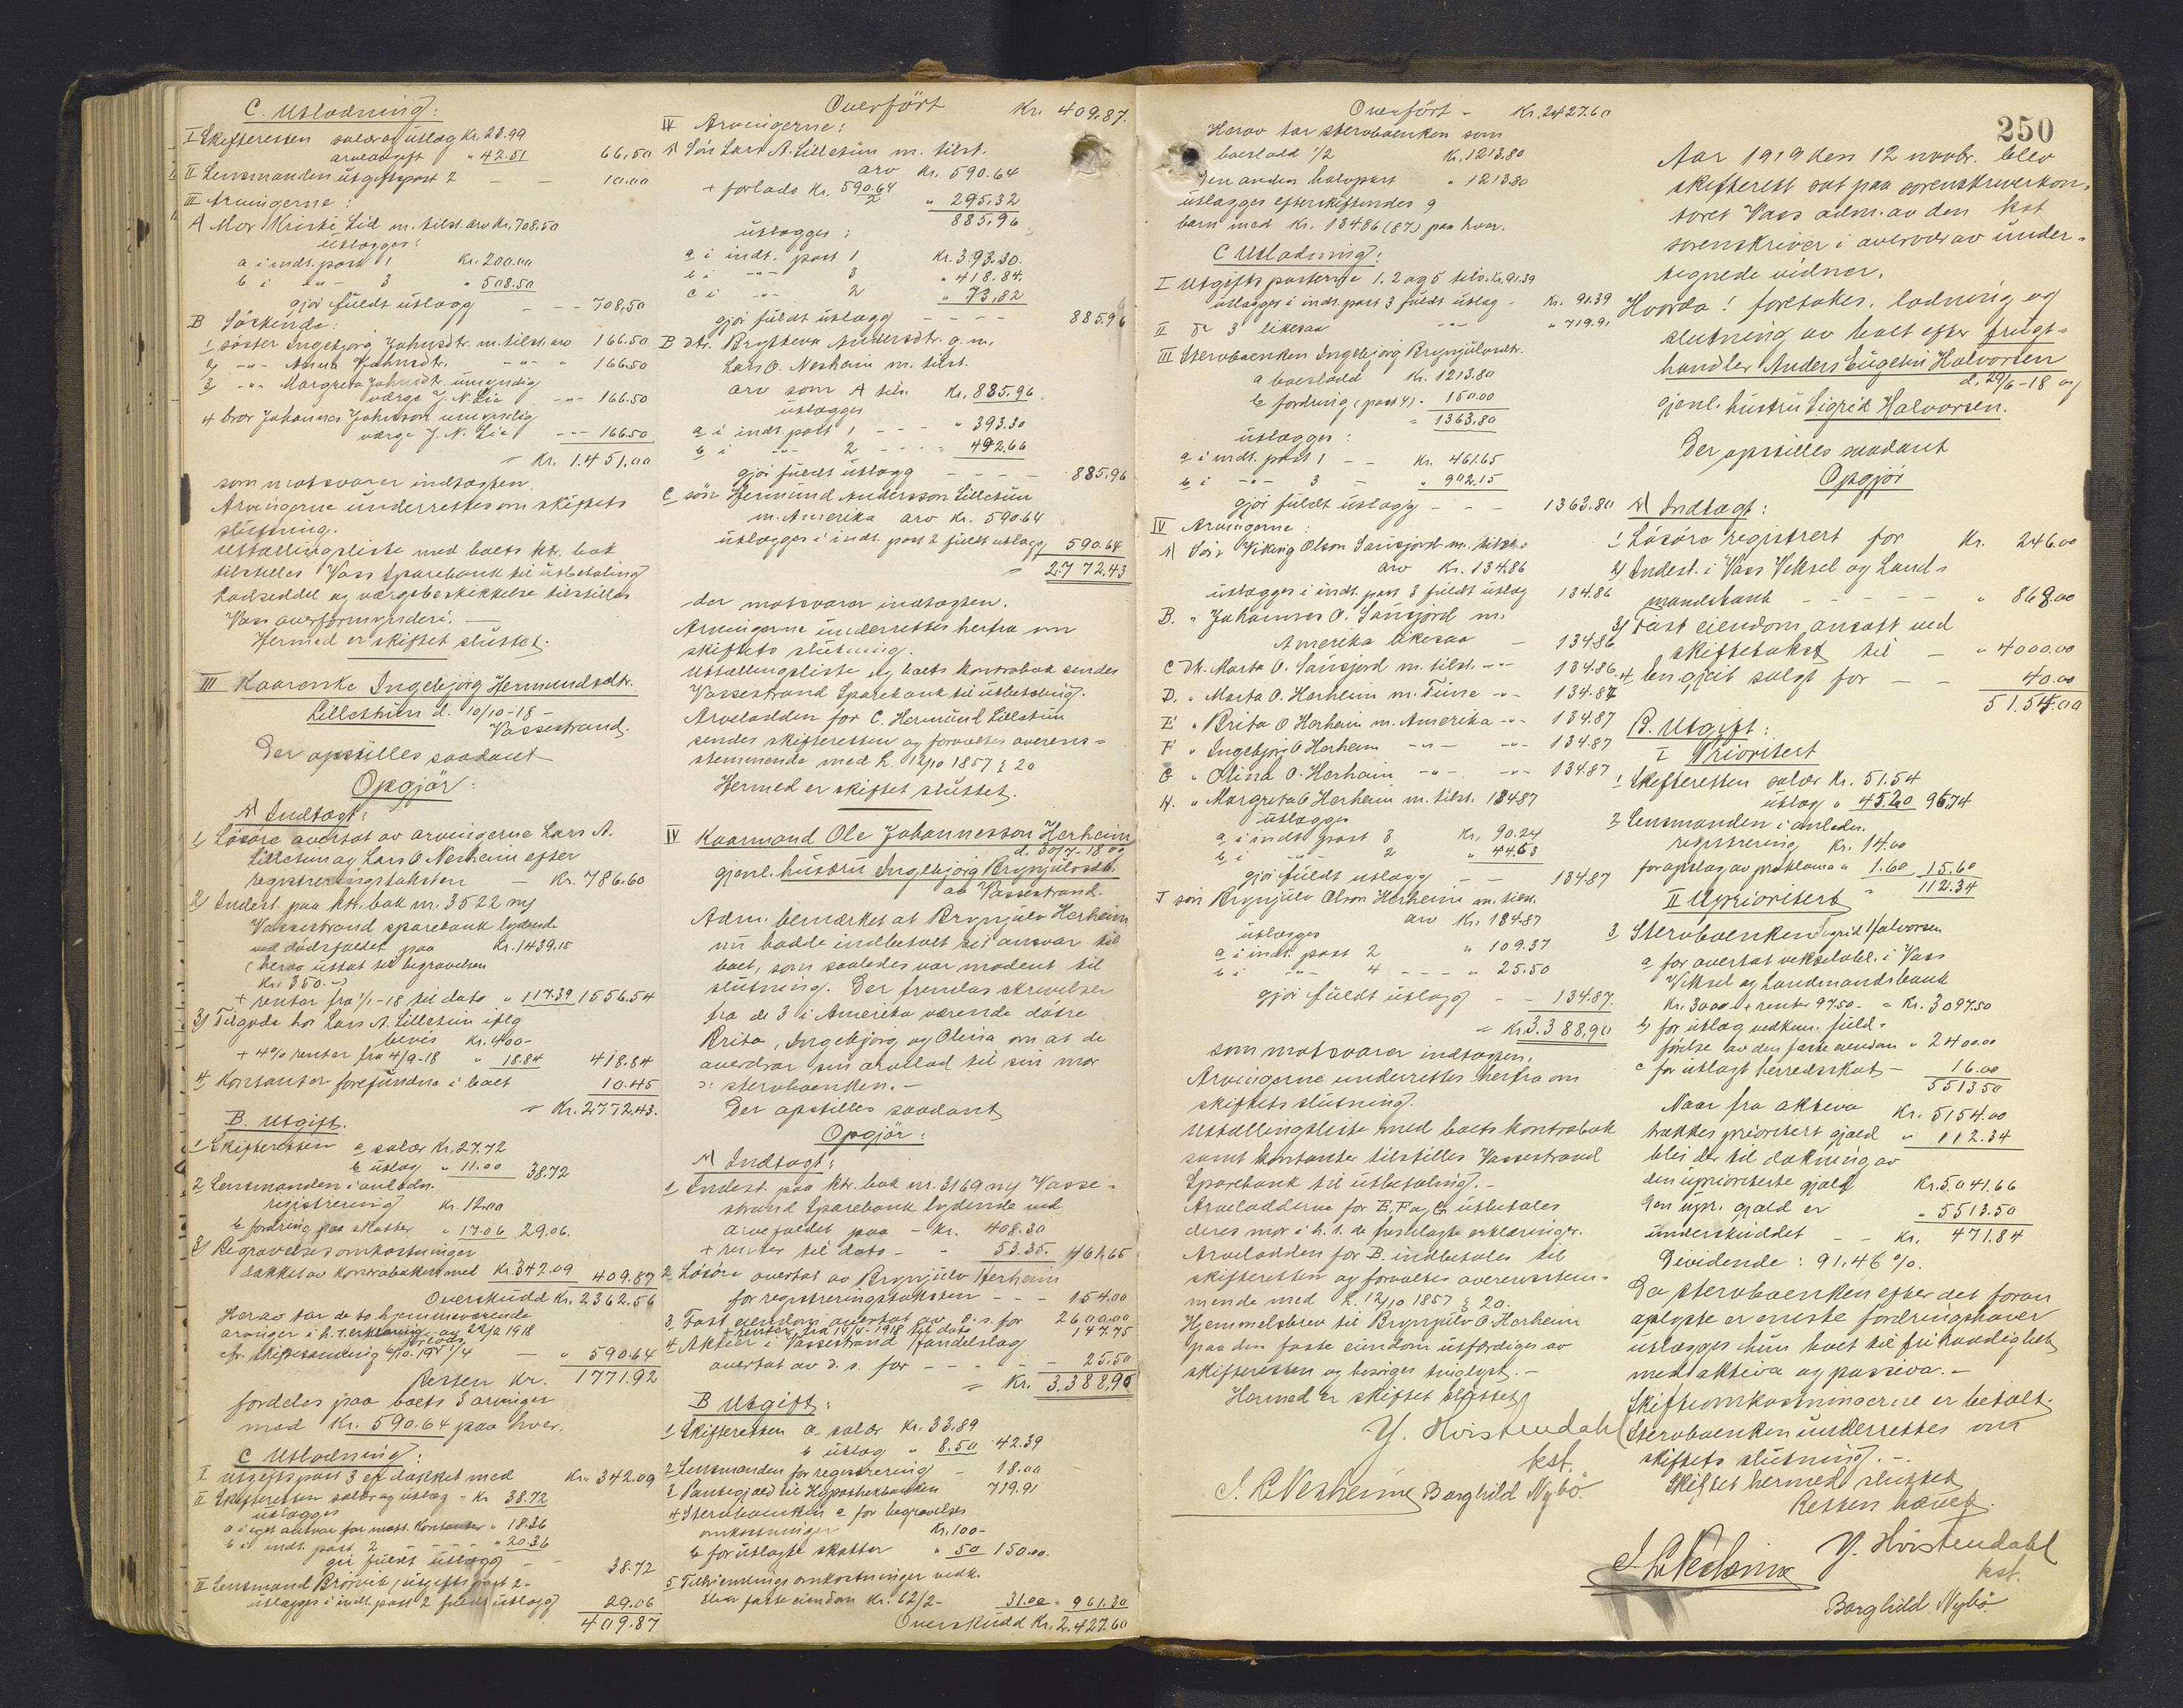 C. Utlodning:
I Skifteretten salær og utlæg Kr. 23.99
arveavgift " 42.51 66,50
II Lensmanden utgiftspost 2 - - 10.00
III Arvingerne:
A Mor Kristi Lid m. tilst. arv Kr. 708.50
utlægges:
a i indt. post 1 Kr. 200.00
b i -"- 3 " 508.50
gjør fuldt utlægg - - 708,50
B Söskende:
1 søster Ingebjörg Johnsdtr. m. tilst. arv 166.50
2 -"- Anna Johnsdtr. -"- " 166.50
3 -"- Margreta Johnsdtr. umyndig
værge J. N. Lie -"- 166.50
4 bror Johannes Johnson umyndig
værge J. N. Lie -"- 166.50
= Kr. 1.451,00
som motsvarer indtægten.
Arvingerne underrettes om skiftets
slutning.
Utlællingsliste med boets ktr. bok
tilstilles Voss Sparebank til utbetaling
Lodseddel og værgebeskikkelse tilstilles
Voss overformynderi. —
Hermed er skiftet sluttet.
III Kaarenke Ingebjörg Hermundsdtr.
Lillethun d. 10/10-18 -
Vossestrand.
Der opstilles saadant
Opgjör:
A Indtægt:
1, Lösöre overtat av arvingerne Lars A.
Lillethun og Lars O Nesheim efter
registreringstaksten — Kr. 786.60
2) Indest. paa ktr. bok nr. 3522 ny
Vossestrand sparebank lydende
ved dödsfaldet paa Kr. 1439.15
(herav uttat til begravelsen
Kr. 350.-)
+ renter fra 1/1-18 til dato " 117.39 1556.54
3) Tilgode hos Lars A. Lillethun iflg
bevis Kr. 400-
+ 4% renter fra 4/9-18 " 18.84 418.84
4 Kontanter forefundne i boet 10.45
= Kr. 2772.43.
B. Utgift.
1 Skifteretten a salær Kr. 27.72
b utlæg " 11.00 38.72
2 Lensmanden i anledn.
registrering Kr. 12.00
b fordring paa skatter " 17.06 29.06.
3) Begravelsesomkostninger
dækket av kontraboken med Kr. 342.09 409.87
Overskudd Kr. 2362.56
Herav tar de to hjemmeværende
arvinger i h. t. erklæring av 22/2 1918
forlods
- " 590.64
Resten Kr. 1771.92
fordeles paa boets 3 arvinger
med Kr. 590.64 paa hver.
C Utlodning:
I Utgiftspost 3 er dækket med Kr. 342.09
II Skifteretten salær og utlæg - Kr 38.72
utlægges
a i eget ansvar for mott. Kontanter " 18.36
b i indt. post 2 - - - " 20.36
gir fuldt utlægg - - 38.72
III Lensmand Brörvik, utgiftspost 2 -
utlægges i indt. post 2 fuldt utlægg 29.06
409.87
Overfört Kr. 409,87.
IV Arvingerne:
A Sön Lars A. Lillethun m. tilst.
arv Kr. 590.64
+ forlods Kr. 590.64/2 " 295.32
885.96
utlægges:
a i indt. post 1 Kr. 393.30.
b i -"- 3 " 418.84.
c i -"- 2 " 73,82
gjör fuldt utlægg - - - - 885.96
B dtr. Brytteva Andersdtr. g. m.
Lars O. Nesheim m. tilst.
arv som A tils. Kr. 885.96
utlægges
a i indt. post 1 - - - " 393.30
b i -"- 2 - - - - 492.66
gjör fuldt utlægg - - - 885.96
C sön Hermund Andersson Lillethun
m. Amerika arv Kr. 590.64
utlægges i indt. post 2 fuldt utlægg 590.64
= 2.772.43
der motsvarer indtægten.
Arvingerne underrettes herfra om
skiftets slutning.
Utlællingsliste og boets kontrabok sendes
Vossestrand Sparebank til utbetaling.
Arvelodden for C. Hermund Lillethun
sendes skifteretten og forvaltes overens=
stemmende med L. 12/10 1857 § 20
Hermed er skiftet sluttet.
IV Kaarmand Ole Johannesson Herheim
d. 30/7-18 og
gjenl. hustru Ingebjörg Brynjulvsdtr.
av Vossestrand.
Adm. bemærket at Brynjulv Herheim
nu hadde indbetalt sit ansvar til
boet, som saaledes var modent til
slutning. Der fremlas skrivelser
fra de 3 i Amerika værende dötre
Brita, Ingebjörg og Olina om at de
overdrar sin arvelod til sin mor
ɔ: stervboenken. —
Der opstilles saadant
Opgjör:
A Indtægt:
1 Indest. paa ktr. bok nr. 3169 ny Vosse=
strand Sparebank lydende ved
arvefaldet paa - Kr. 408.30
+ renter til dato - " 53.35. 461,65
2 Lösöre overtat av Brynjulv Herheim
for registreringstaksten - - - 154.00
3. Fast eiendom overtat av d. s. for 2600.00
+ renter fra 14/4-1918 til dato 147.75
4 Aktier i Vossestrand Handelslag
overtat av d. s. for - - - - 25.50
= Kr. 3.388,90
B Utgift:
1 Skifteretten a salær Kr. 33.89
b utlæg " 8.50 42.39
2 Lensmanden for registrering - 18.00
3 Pantegjæld til Hypothekbanken 719.91
4 Stervboenken a for begravelses
omkostninger Kr. 100-
b for utlagte skatter " 50 150.00.
5 Tilhiemlingsomkostninger vedk.
den faste eiendom Kr. 62/2 - 31.00 = 961.30
Overskudd Kr. 2.427.60
Overfört - Kr. 2427.60
Herav tar stervboenken som
boeslodd 1/2 Kr. 1213.80
Den anden halvpart " 1213.80
utlægges efterskiftendes 9
barn med Kr. 134.86 (87) paa hver.
C Utlodning:
I Utgiftsposterne 1. 2 og 5 tils. Kr. 91.39
utlægges i indt. post 3 fuldt utlæg - Kr. 91.39
II do 3 likesaa -"- " 719.91
III Stervboenken Ingebjörg Brynjulvsdtr.
a boeslodd Kr. 1213.80
b fordring (post 4) - 150.00
= 1363.80
utlægges:
a i indt. post 1 - - Kr. 461.65
b i -"- 3 - " 902.15
gjör fuldt utlægg - - - 1363.80
IV Arvingerne:
A Sön Viking Olson Sausjord m. tilst.
arv Kr. 134.86
utlægges i indt. post 3 fuldt utlæg 134.86
B. " Johannes O. Sausjord m.
Amerika likesaa - 134.86
C Dt. Marta O. Sausjord m. tilst. -"- 134.86
D. " Marta O. Herheim m. Tunse -"- 134.87
E " Brita O Herheim m. Amerika -"- 134.87
F " Ingebjörg O Herheim -"- -"- 134.87
G " Olina O. Herheim -"- -"- 134.87
H. " Margreta O Herheim m. tilst. 134.87
utlægges
a i indt. post 3 Kr. 90.24
b i -"- 2 " 44.63
gjör fuldt utlægg - - 134.87
J sön Brynjulv Olson Herheim m. tilst.
arv Kr. 134.87
utlægges
a i indt. post 2 " 109.37
b i -"- 4 - - - " 25.50
gjör fuldt utlægg - - 134.87.
= Kr. 3.388,90
som motsvarer indtægten.
Arvingerne underrettes herfra om
skiftets slutning.
Utlællingsliste med boets kontrabok
samt kontanter tilstilles Vossestrand
Sparebank til utbetaling. -
Arveloddene for E, F og G utbetales
deres mor i h. t. de fremlagte erklæringer.
Arvelodden for B. indbetales til
skifteretten og forvaltes overensstem=
mende med L. 12/10 1857 § 20.
Hjemmelsbrev til Brynjulv O Herheim
paa den faste eiendom utfærdiges av
skifteretten og besörges tinglyst. -
Hermed er skiftet sluttet
Y. Hvistendahl
kst.
Borghild Nybö.
250
Aar 1919 den 12 novbr. blev
skifterett sat paa sorenskriverkon=
toret Voss adm. av den kst
sorenskriver i overvær av under=
tegnede vidner.
Hvorda! foretokes. lodning og
slutning av boet efter frugt=
handler Anders Eugelin Halvorsen
d. 29/6-18 og
gjenl. hustru Sigrid Halvorsen.
Der opstilles saadant
Opgjör
A Indtægt:
1 Lösöre registrert for Kr. 246.00
2) Indest. i Voss Veksel og Land=
mandsbank - - - - - " 868.00
3) Fast eiendom ansatt ved
skiftetakst til - " 4000.00
4 En gjeit solgt for - - 40.00
5154.00
B. Utgift:
I Prioritert
1 Skifteretten salær Kr. 51.54
utlæg " 45.20 96,74
2 Lensmanden i anledn.
registrering Kr. 14.00
for opslag av proklama " 1.60 15.60
" 112.34
II Uprioritert
3 Stervboenken Sigrid Halvorsen
a for overtat vekselobl. i Voss
Veksel og Landmandsbank
Kr. 3000 + rente 97.50 - = Kr. 3097.50
b for utlæg vedkom. fuld=
förelse av den faste eiendom " 2400.00
c for utlagt herredsskat - 16.00
5513.50
Naar fra aktiva Kr. 5154.00
trækkes prioritert gjæld " 112.34
blir der til dækning av
den uprioriterte gjæld Kr. 5041.66
Den upr. gjæld er " 5513.50
underskuddet - - Kr. 471.84
Dividende: 91,46 %.
Da stervboenken efter det foran
oplyste er eneste fordringshaver
utlægges hun boet til fri raadighet
med aktiva og passiva. -
Skifteomkostningerne er betalt.
Stervboenken underrettes om
skiftets slutning. -
Skiftet hermed sluttet
Retten hævet.
Y. Hvistendahl
kst.
Borghild Nybö